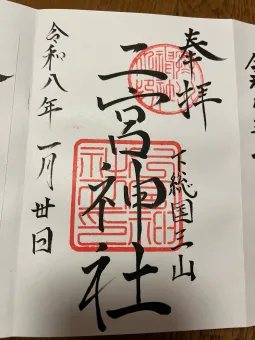 奉拝
下総国三山
二宮神社
令和八年一月廿日